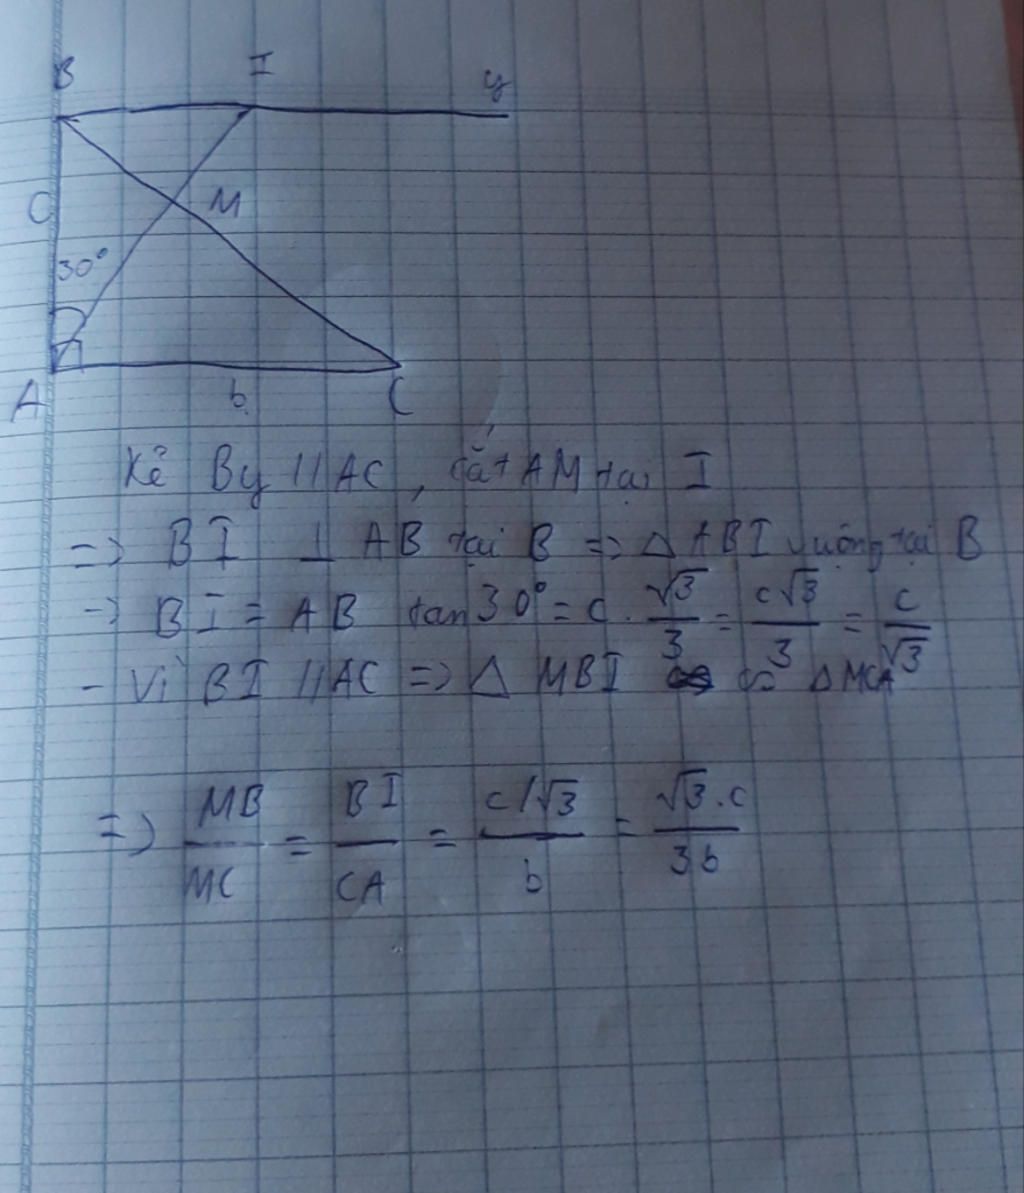 B I y
C M
30°
A b C
Kẻ By // AC, cắt AM tại I
=> BI ⊥ AB tại B => Δ ABI vuông tại B
-> BI = AB tan30° = c . √3/3 = c√3/3 = c/√3
- Vì BI // AC => Δ MBI ∽ Δ MCA
=> MB/MC = BI/CA = c/√3/b = √3.c/3b